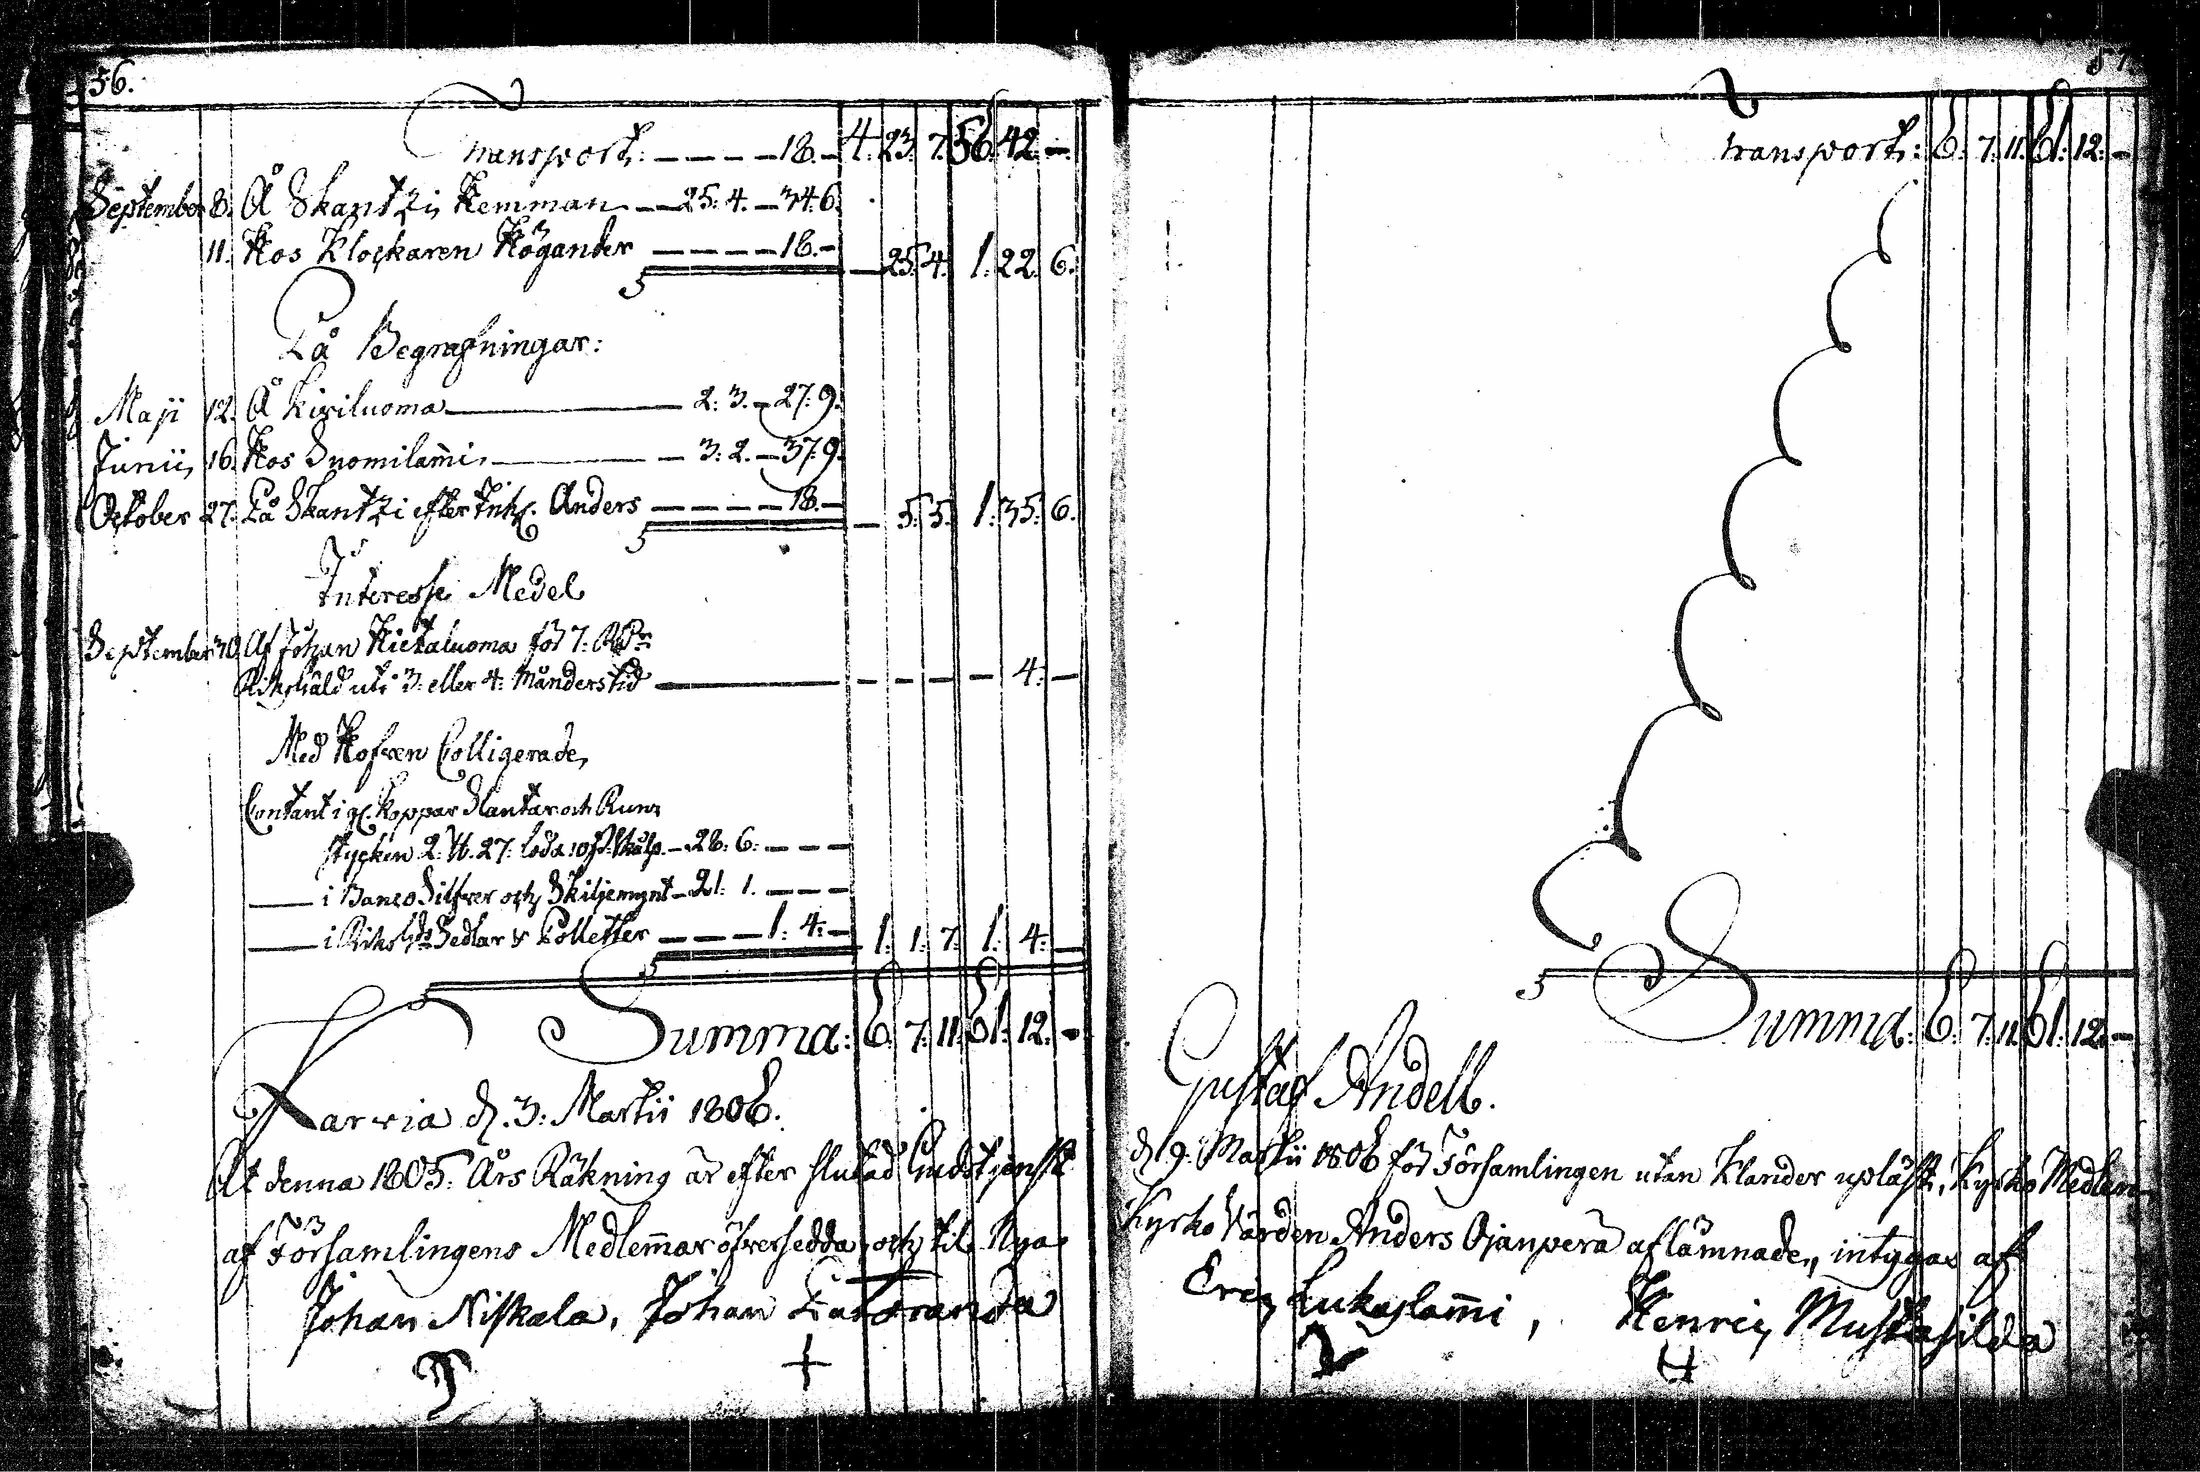 56.
transport: — — — — 18. — 4. 23. 7. 56. 42. —
September 8. Å Skantzi Hemman — 25. 4. — 34. 6.
11. Hos Klockaren Högander — — — — 18. — — 25. 4. 1. 22. 6.
På Begrafningar:
Maji 12. Å Kiviluoma — 2. 3. — 27. 9.
Junii 16. Hos Suomilam̄i — 3. 2. — 37. 9.
October 27. På Skantzi efter Inh. Anders — — — — 18. — — 5. 5. 1. 35. 6.
Interesse Medel
September 30. Af Johan Hietaluoma för 7. RDr
Riksgäld uti 3. eller 4. Månders tid — — — — — 4. —
Med Hofven Colligerade,
Contant i gl. Koppar Slantar och Runs
stycken 2. ℔. 27. lod — 28. 6. — — —
— i Banco Silfver och Skiljemynt — 21. 1. — — —
— i Riksg. Sedlar & Polletter — — — 1. 4. — 1. 1. 7. 1. 4. —
Summa: 6. 7. 11. 61. 12. —
Karvia d. 3. Martii 1806.
At denna 1805. Års Räkning är efter slutad Gudstjenst
af Församlingens Medlem̄ar öfversedda, och til Nya
Johan Niskala, Johan
+
57
transport: 6. 7. 11. 61. 12. —
Summa: 6. 7. 11. 61. 12. —
Gustaf Andell.
d. 9. Martii 1806 för Församlingen utan Klander upläst, Kyrko Medlen
Kyrko Värden Anders Ojanperä aflämnade, intygar af
Eric Lukaslam̄i, Henric Mustasilda